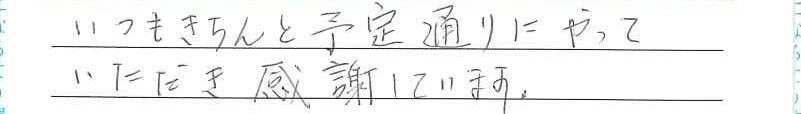 いつもきちんと予定通りにやって
いただき感謝しています。